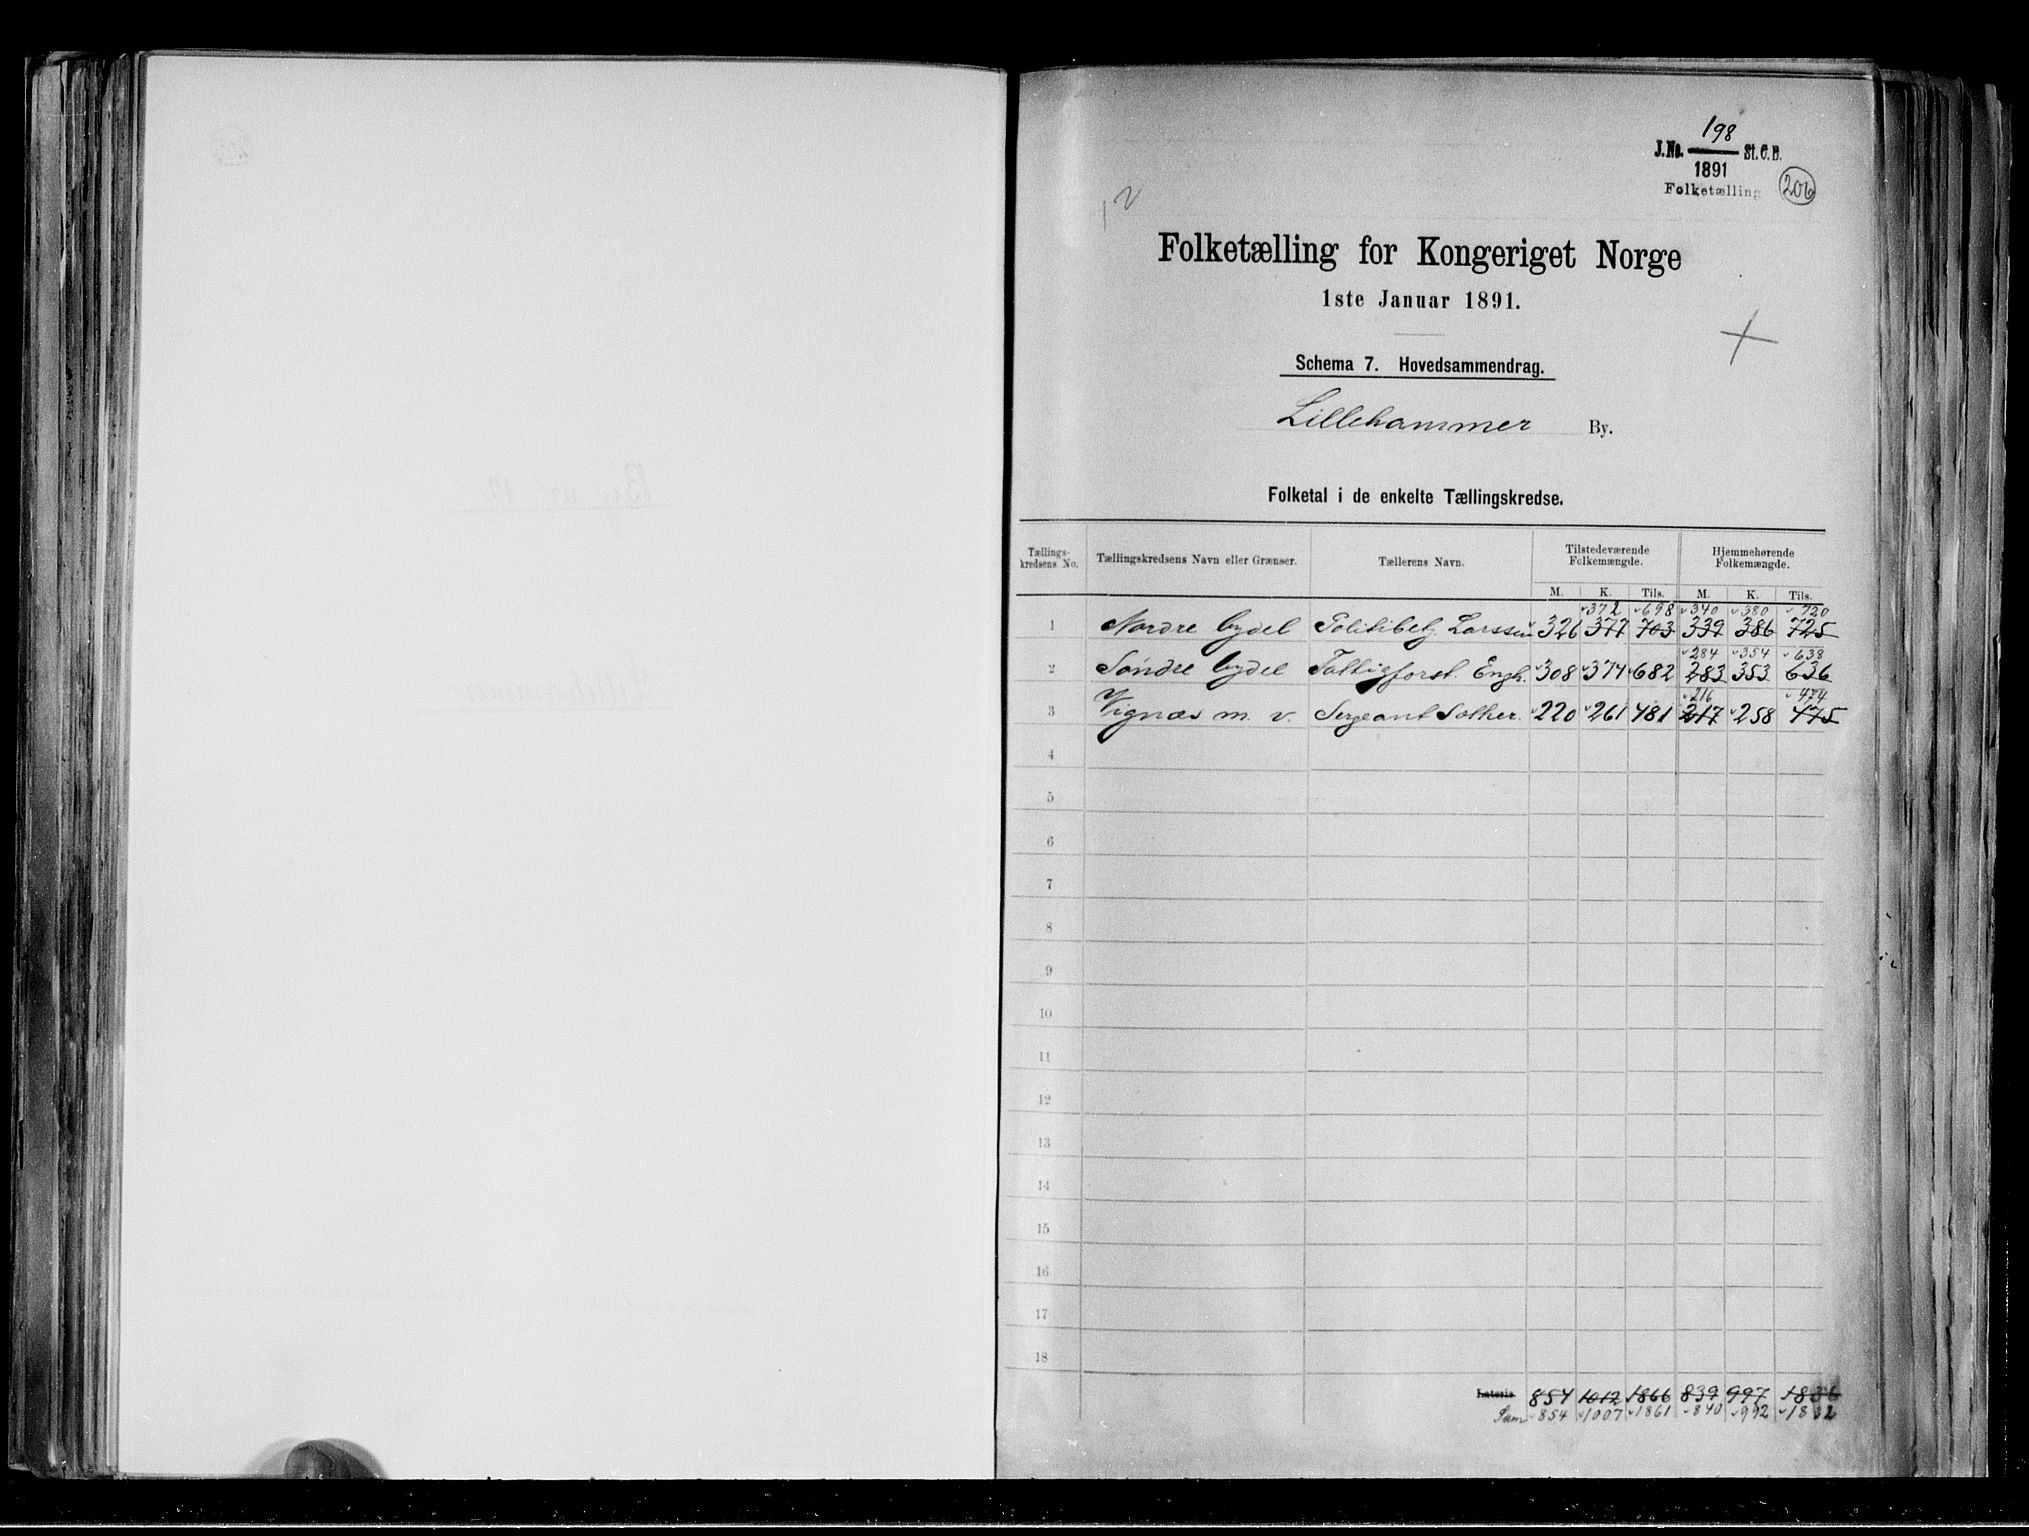 198
J.No. St. C. B.
1891
Folketælling 206
Folketælling for Kongeriget Norge
1ste Januar 1891.
Schema 7. Hovedsammendrag.
Lillehammer By.
Folketal i de enkelte Tællingskredse.
Tællings-kredsens No. Tællingskredsens Navn eller Grænser. Tællerens Navn. Tilstedeværende Folkemængde. Hjemmehørende Folkemængde.
M. K. Tils. M. K. Tils.
372 698 340 380 720
1 Nordre bydel Politibetj. Larssen 326 377 703 339 386 725
284 354 638
2 Søndre bydel 308 374 682 283 353 636
216 474
3 Vignæs m. v. Sergeant 220 261 481 217 258 475
4
5
6
7
8
9
10
11
12
13
14
15
16
17
18
Lateris 854 1012 1866 839 997 1836
Sum 854 1007 1861 840 992 1832